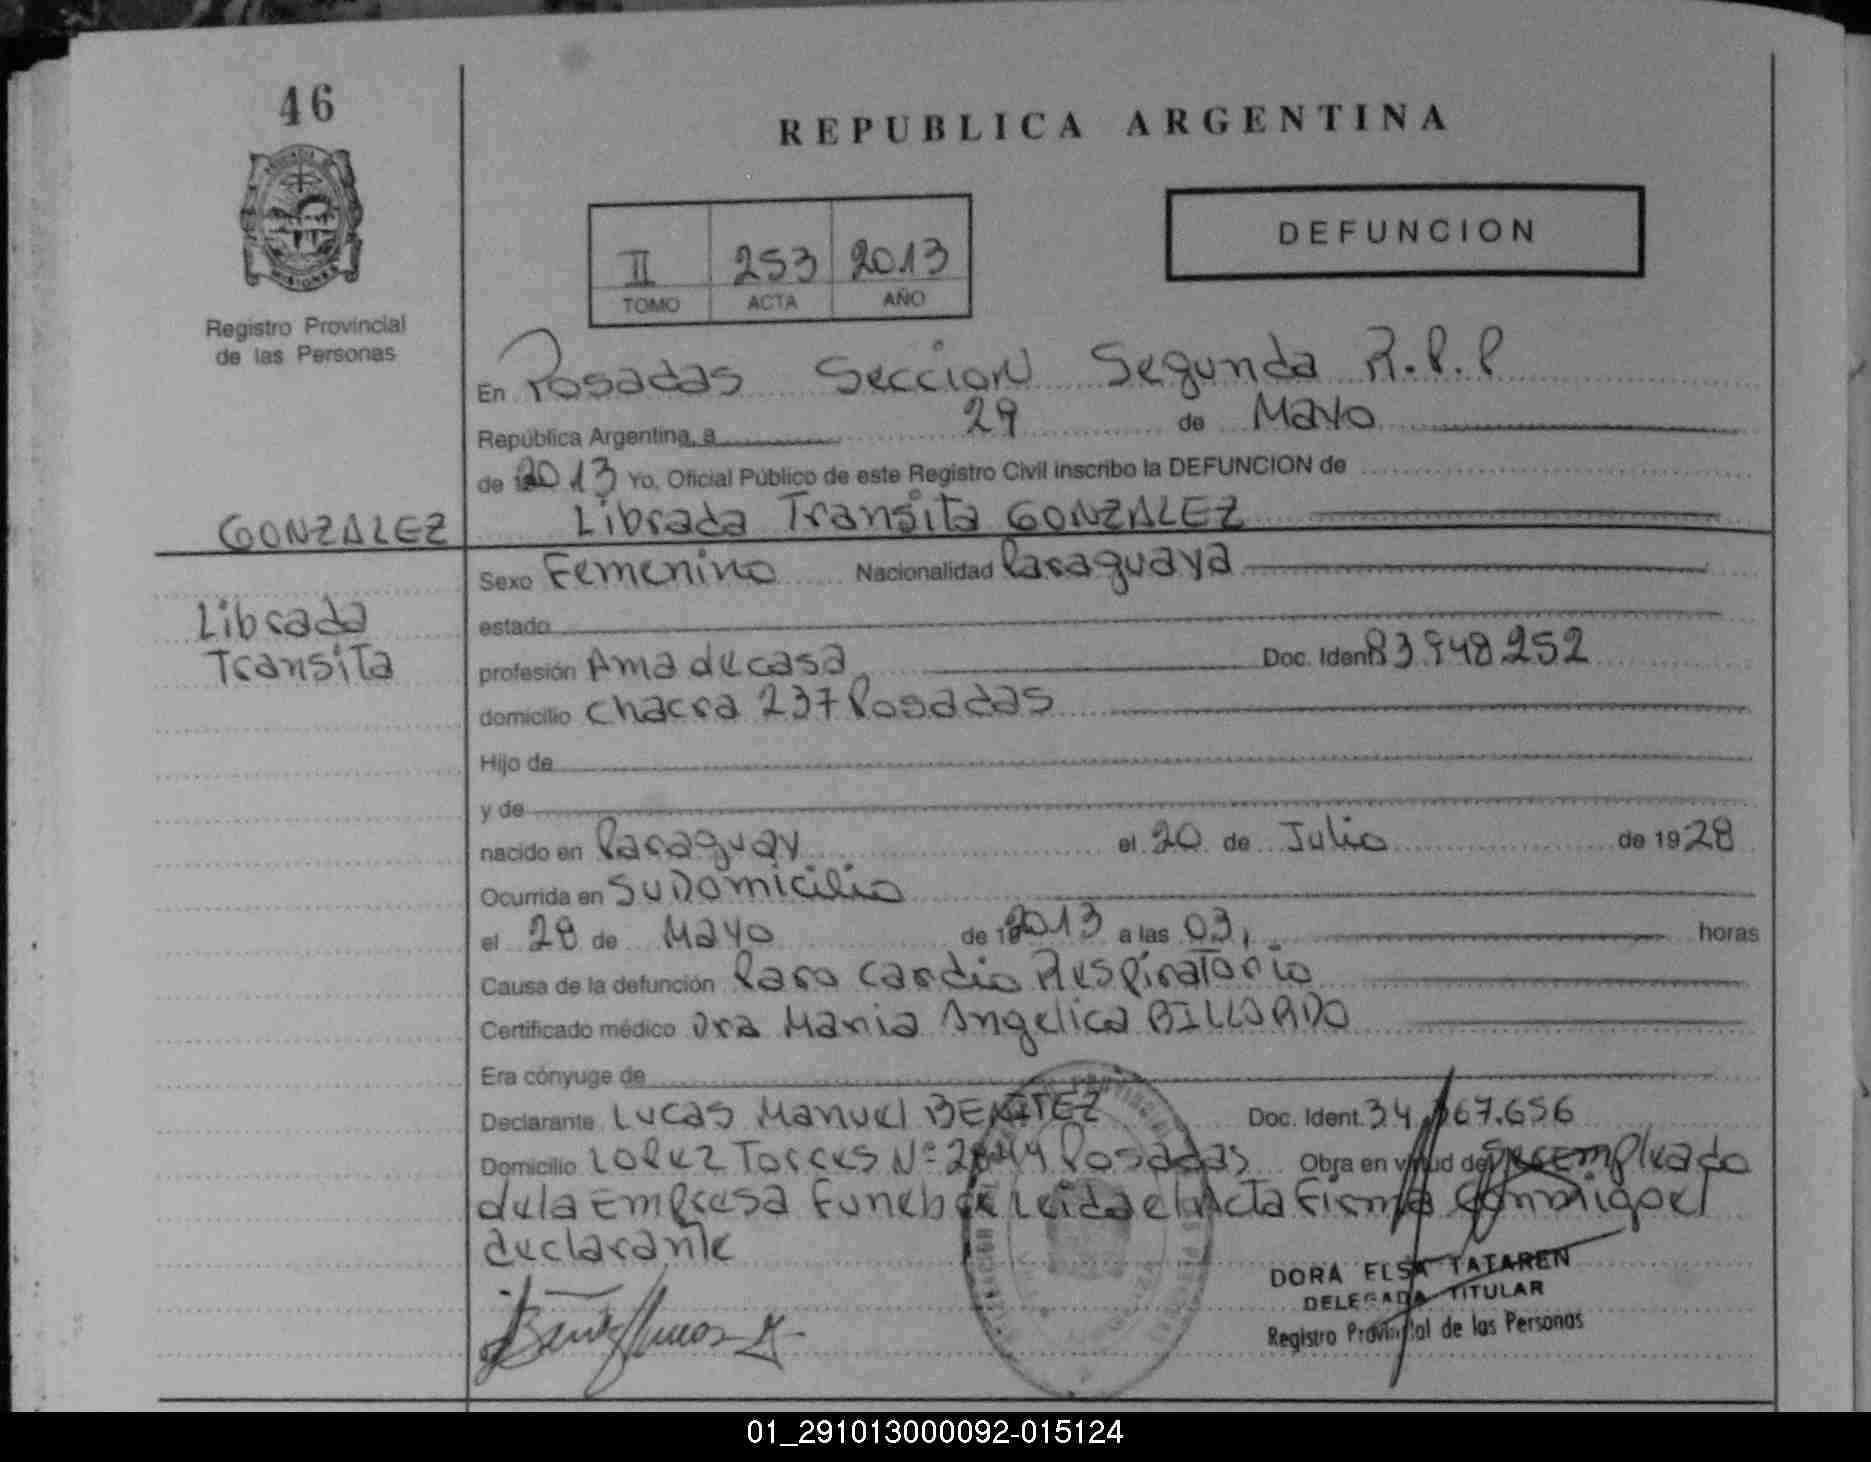 46
REPUBLICA ARGENTINA
DEFUNCION
II 253 2013
TOMO ACTA AÑO
Registro Provincial
de las Personas
En Posadas Seccion Segunda R.P.P
República Argentina, a 29 de Mayo
de 2013 Yo, Oficial Público de este Registro Civil inscribo la DEFUNCION de
GONZALEZ
Librada Transita GONZALEZ
Librada
Transita
Sexo Femenino Nacionalidad Paraguaya
estado
profesión Ama de casa Doc. Ident. 83.948.252
domicilio chacra 237 Posadas
Hijo de
y de
nacido en Paraguay el 20 de Julio de 1928
Ocurrida en su Domicilio
el 28 de Mayo de 2013 a las 03, horas
Causa de la defunción Paro cardio Respiratorio
Certificado médico Dra Maria Angelica
Era cónyuge de
Declarante Lucas Manuel BENITEZ Doc. Ident. 34. 67.656
Domicilio Lopez Torres Nº Posadas Obra en virtud de empleado
de la Empresa Funebre Leida el Acta Firma conmigo el
declarante
DORA ELSA TATAREN
DELEGADA TITULAR
Registro Provincial de las Personas
01_291013000092-015124